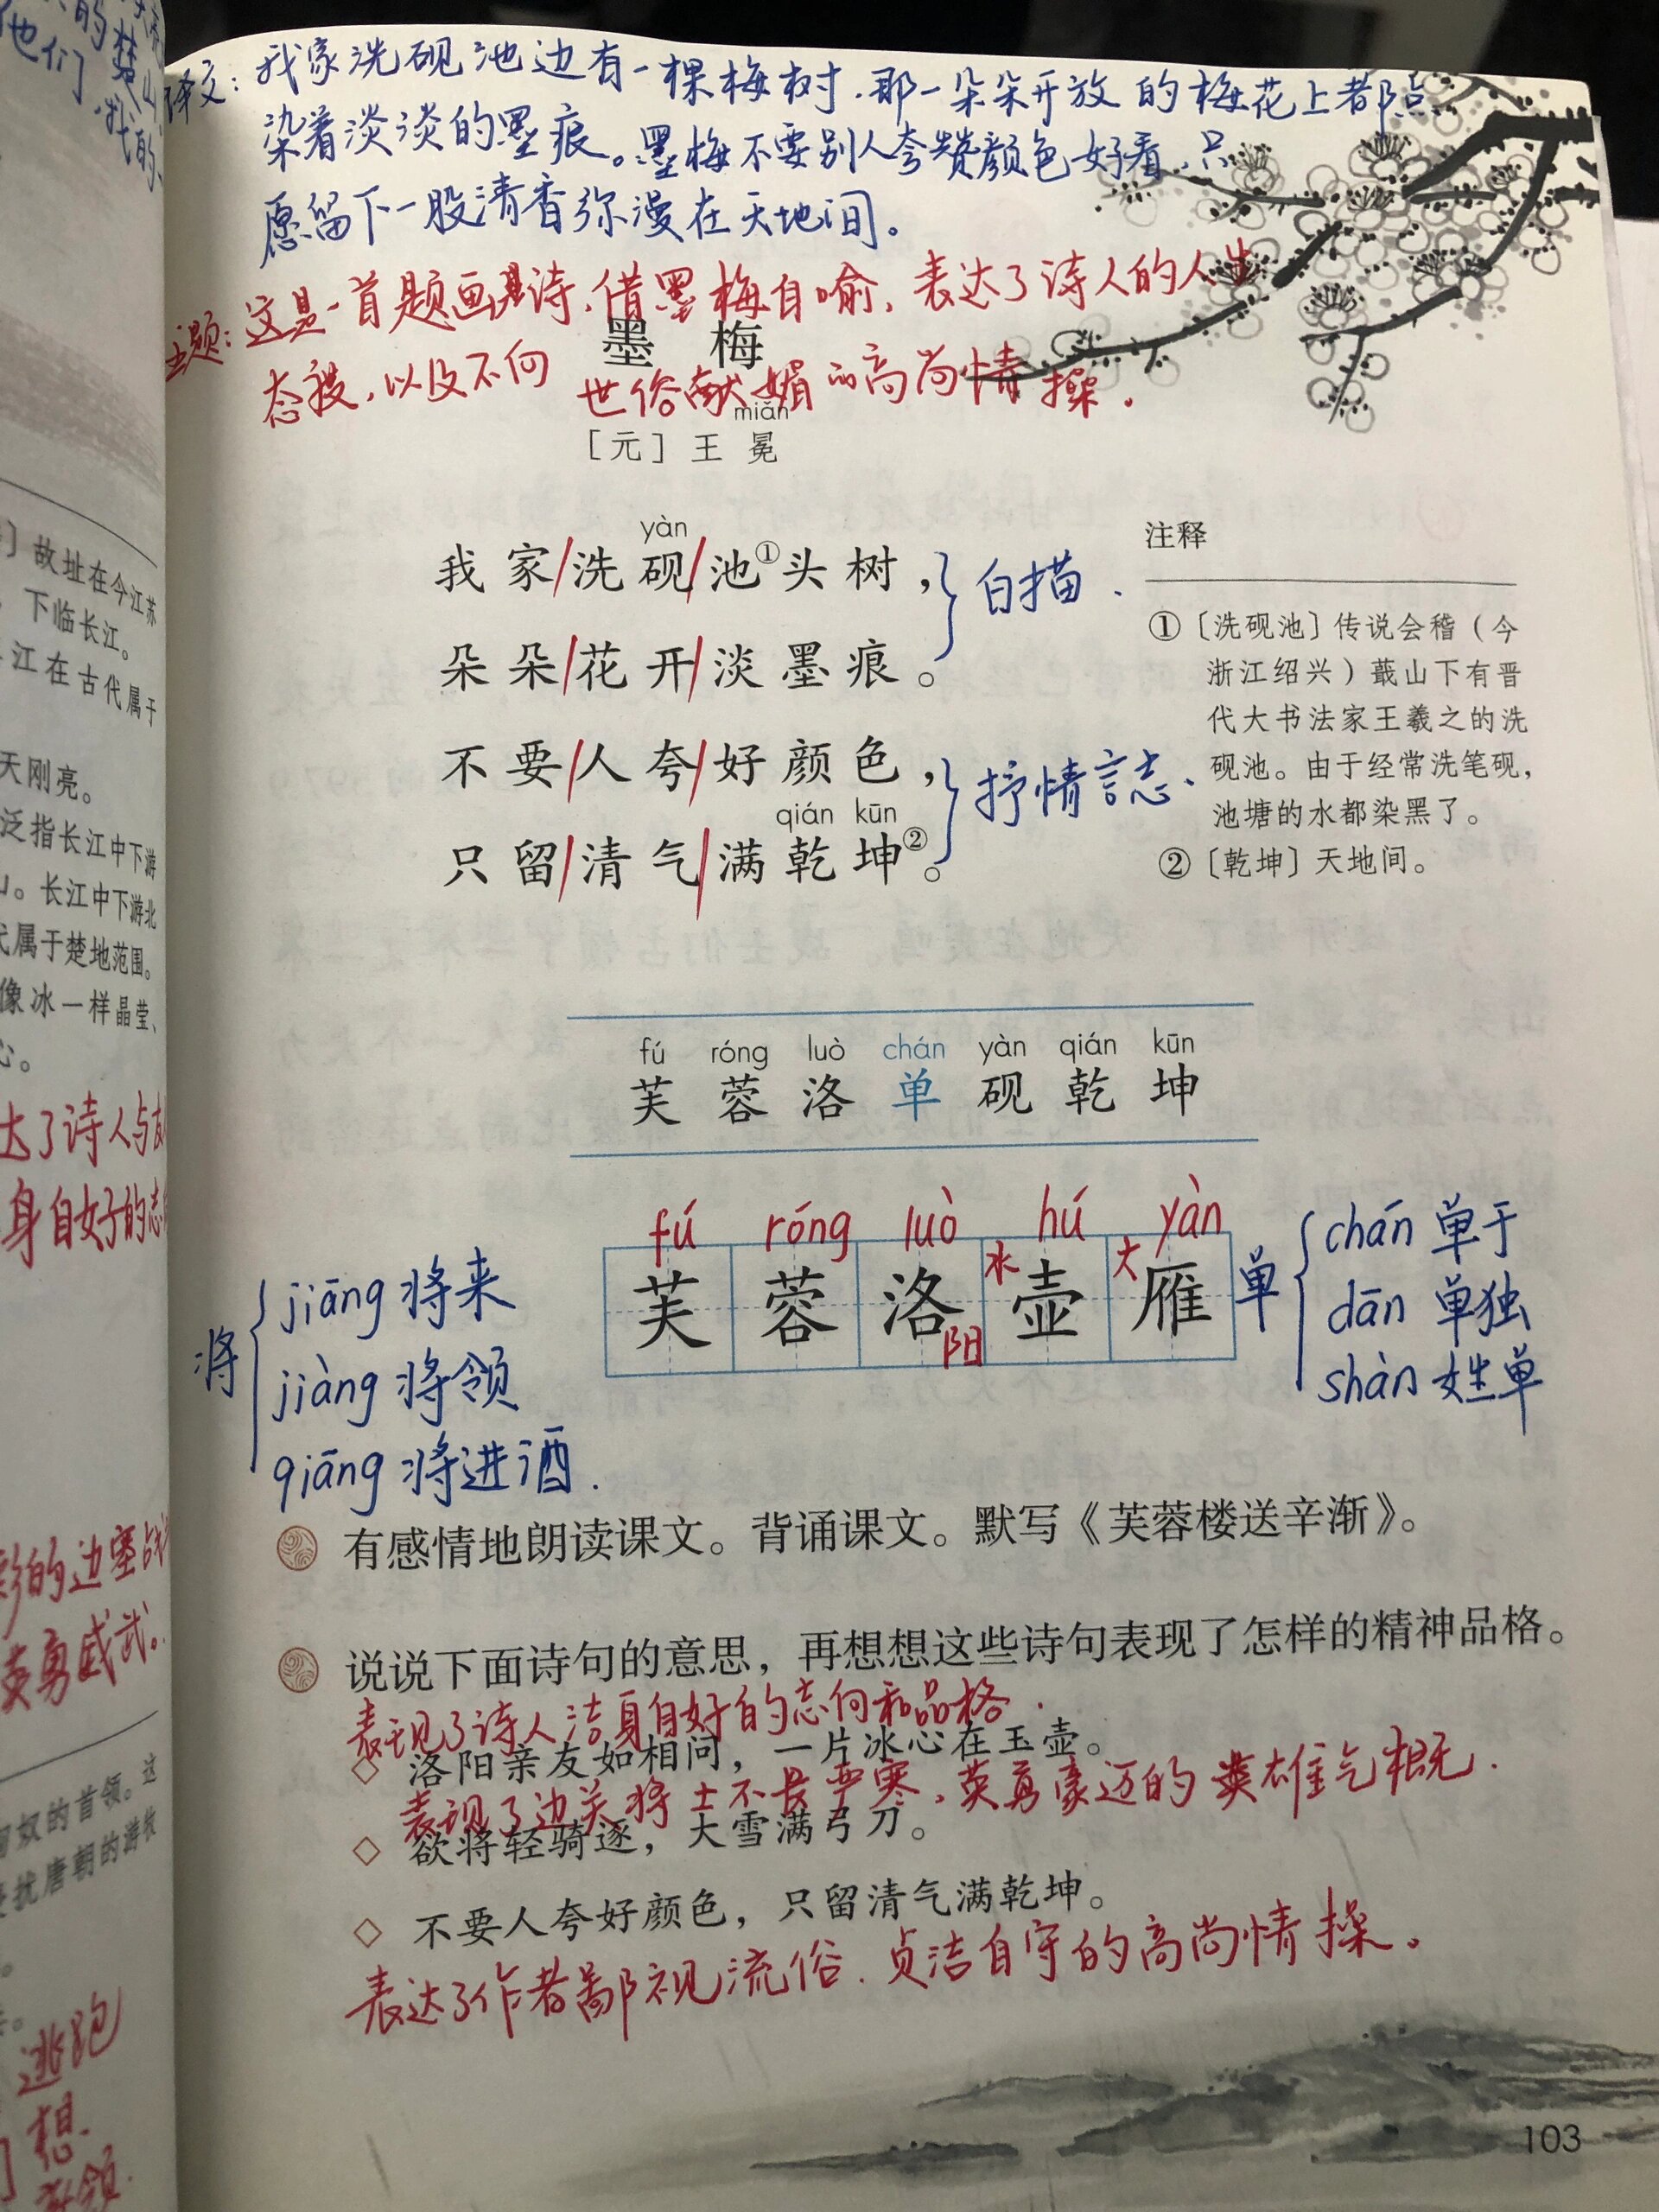 译文：我家洗砚池边有一棵梅树，那一朵朵开放的梅花上都点
染着淡淡的墨痕。墨梅不要别人夸赞颜色好看，只
愿留下一股清香弥漫在天地间。
主题：这是一首题画诗，借墨梅自喻，表达了诗人的人生
态度，以及不向世俗献媚的高尚情操。
墨梅
miǎn
［元］王冕
yàn
我家洗砚池①头树，
朵朵花开淡墨痕。
白描.
不要人夸好颜色，
qián kūn
只留清气满乾坤②。
抒情言志.
注释
①［洗砚池］传说会稽（今
浙江绍兴）蕺山下有晋
代大书法家王羲之的洗
砚池。由于经常洗笔砚，
池塘的水都染黑了。
②［乾坤］天地间。
fú róng luò chán yàn qián kūn
芙蓉洛单砚乾坤
fú róng luò hú yàn
芙蓉洛阳水壶大雁
将
jiāng 将来
jiàng 将领
qiāng 将进酒.
单
chán 单于
dān 单独
shàn 姓单
有感情地朗读课文。背诵课文。默写《芙蓉楼送辛渐》。
说说下面诗句的意思，再想想这些诗句表现了怎样的精神品格。
表现了诗人洁身自好的志向和品格.
◇ 洛阳亲友如相问，一片冰心在玉壶。
表现了边关将士不畏严寒，英勇豪迈的英雄气概.
◇ 欲将轻骑逐，大雪满弓刀。
◇ 不要人夸好颜色，只留清气满乾坤。
表达了作者鄙视流俗、贞洁自守的高尚情操。
103
的楚山
他们
我的
］故址在今江苏
下临长江。
江在古代属于
天刚亮。
泛指长江中下游
。长江中下游北
属于楚地范围。
像冰一样晶莹、
心。
达了诗人与
身自好的志
的边塞战
英勇威武。
奴的首领。这
扰唐朝的游牧
逃跑
］想.